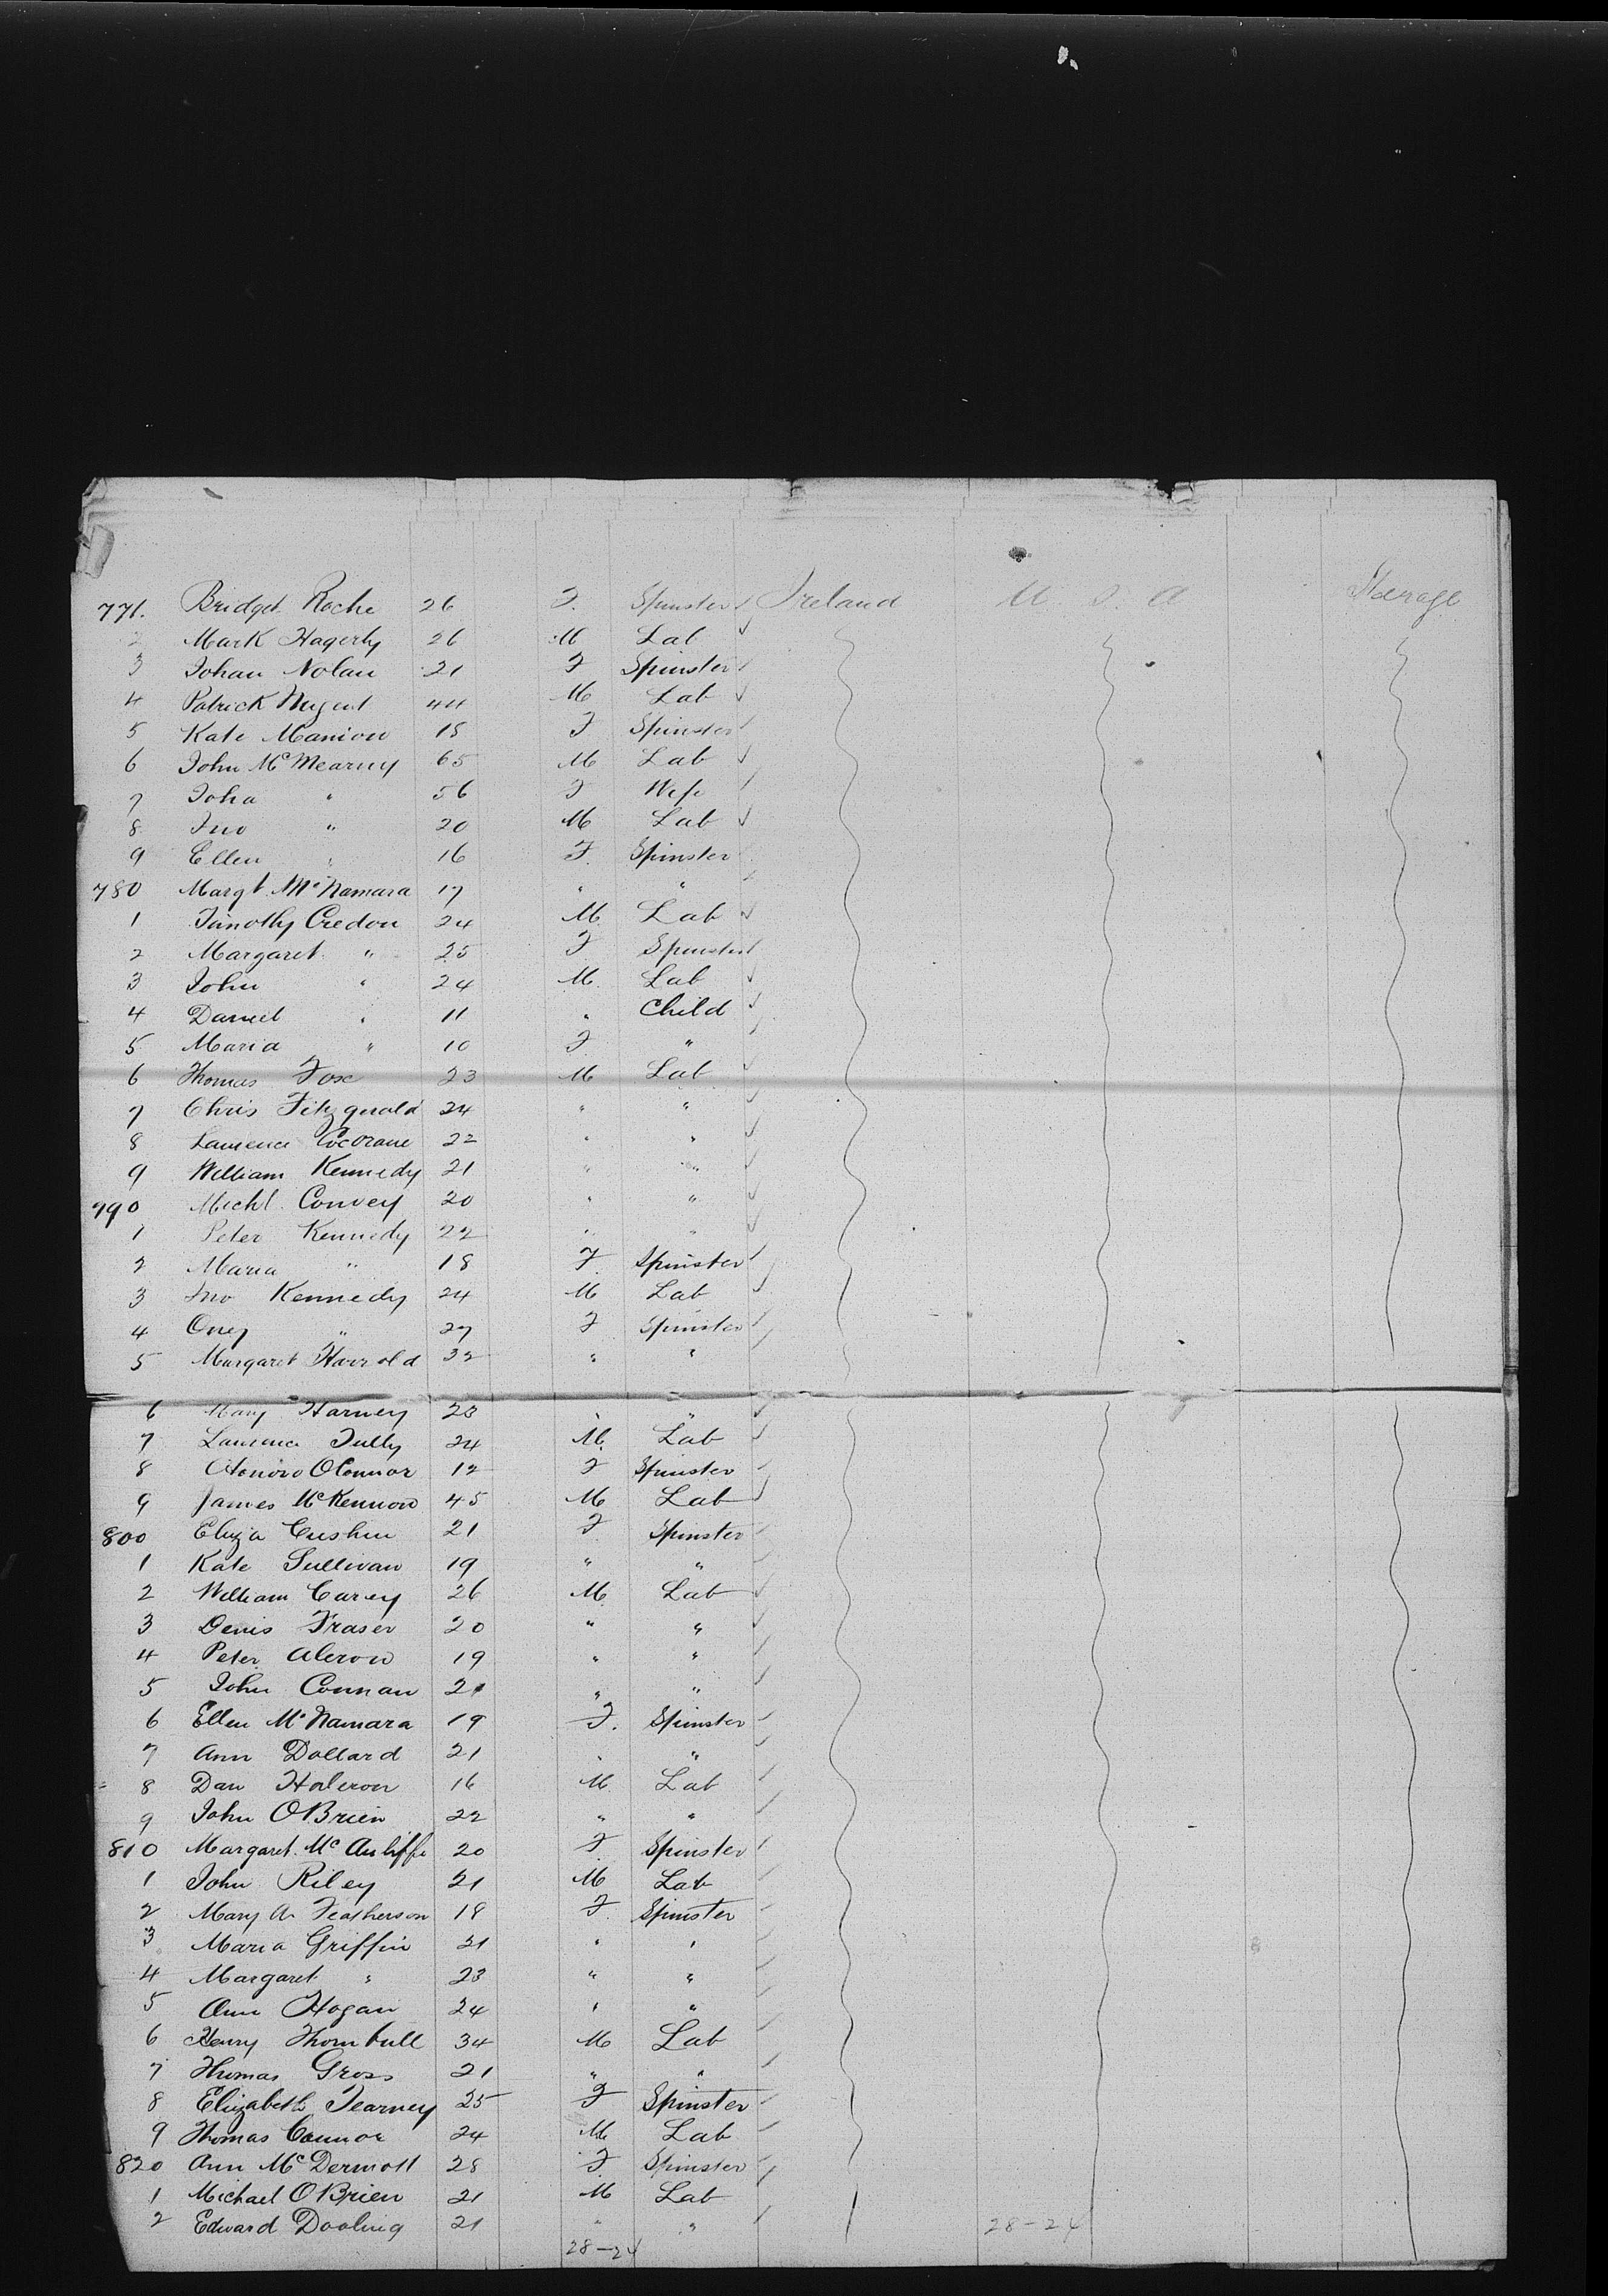 771. Bridget Roche 26 F. Spinster Ireland U. S. A Steerage
2 Mark Hagerty 26 M Lab
3 Johan Nolan 21 F Spinster
4 Patrick Nugent 44 M Lab
5 Kate Manion 18 F Spinster
6 John McMearny 65 M Lab
7 Joha " 56 F Wife
8 Jno " 20 M Lab
9 Ellen " 16 F. Spinster
780 Margt. McNamara 17 " "
1 Timothy Credon 24 M. Lab
2 Margaret " 25 F Spinster
3 John " 24 M. Lab
4 Daniel " 11 " Child
5 Maria " 10 F "
6 Thomas Fox 23 M Lab
7 Chris Fitzgerald 24 " "
8 Laurence Cocrane 22 " "
9 William Kennedy 21 " "
790 Michl. Convey 20 " "
1 Peter Kennedy 22 " "
2 Maria " 18 F. Spinster
3 Jno Kennedy 24 M Lab
4 Oney " 27 F Spinster
5 Margaret Harrold 32 " "
6 Mary Harney 23 " "
7 Laurence Tully 24 M. Lab
8 Honoro OConnor 12 F Spinster
9 James McKennon 45 M Lab
800 Eliza Cushin 21 F Spinster
1 Kate Sullivan 19 " "
2 William Carey 26 M. Lab
3 Denis Fraser 20 " "
4 Peter Aleron 19 " "
5 John Connan 21 " "
6 Ellen McNamara 19 F. Spinster
7 Ann Dollard 21 " "
8 Dan Haleron 16 M Lab
9 John OBrien 22 " "
810 Margaret. McAuliffe 20 F Spinster
1 John Riley 21 M Lab
2 Mary A Featherson 18 F. Spinster
3 Maria Griffin 21 " "
4 Margaret " 23 " "
5 Ann Hogan 24 " "
6 Henry Thornbull 34 M Lab
7 Thomas Gross 21 " "
8 Elizabeth Tearney 25 F Spinster
9 Thomas Connor 24 M Lab
820 Ann McDermott 28 F. Spinster
1 Michael OBrien 21 M Lab
2 Edward Dooling 21 " " 28-24
28-24